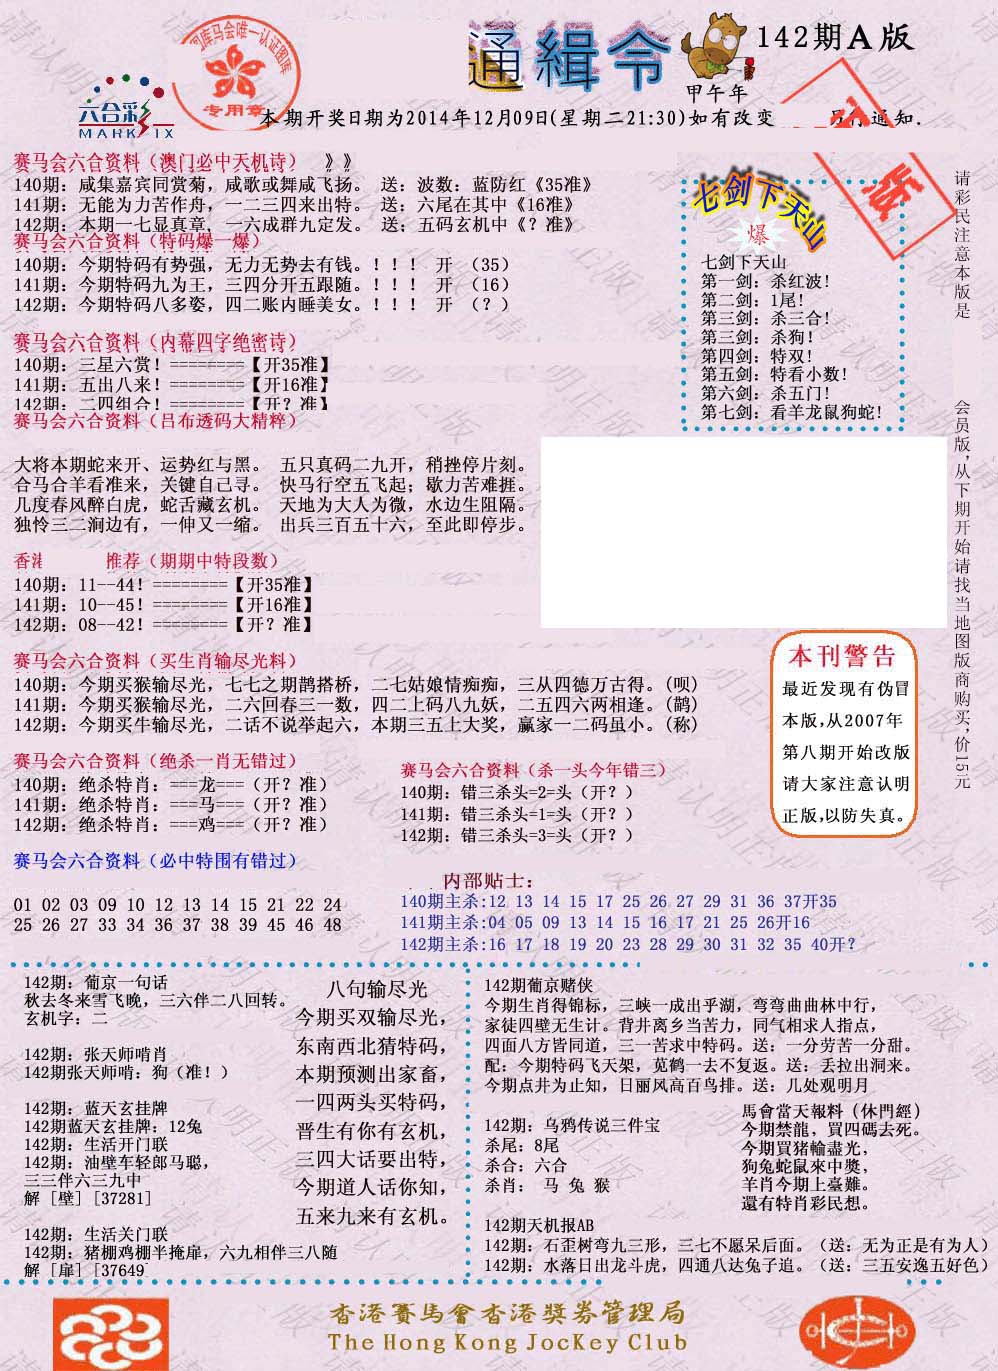 通緝令
142期A版
甲午年
六合彩
MARK SIX
专用章
本期开奖日期为2014年12月09日(星期二21:30)如有改变
通知.
赛马会六合资料（澳门必中天机诗） 》》
140期: 咸集嘉宾同赏菊，咸歌或舞咸飞扬。 送: 波数: 蓝防红《35准》
141期: 无能为力苦作舟，一二三四来出特。 送; 六尾在其中《16准》
142期: 本期一七显真章，一六成群九定发。 送; 五码玄机中《？准》
赛马会六合资料（特码爆一爆）
140期: 今期特码有势强，无力无势去有钱。！！！ 开 （35）
141期: 今期特码九为王，三四分开五跟随。！！！ 开 （16）
142期: 今期特码八多姿，四二账内睡美女。！！！ 开 （？）
赛马会六合资料（内幕四字绝密诗）
140期: 三星六赏！========【开35准】
141期: 五出八来！========【开16准】
142期: 二四组合！========【开？准】
赛马会六合资料（吕布透码大精粹）
大将本期蛇来开、运势红与黑。 五只真码二九开，稍挫停片刻。
合马合羊看准来，关键自己寻。 快马行空五飞起; 歇力苦难捱。
几度春风醉白虎，蛇舌藏玄机。 天地为大人为微，水边生阻隔。
独怜三二涧边有，一伸又一缩。 出兵三百五十六，至此即停步。
七剑下天山
爆
七剑下天山
第一剑: 杀红波!
第二剑: 1尾!
第三剑: 杀三合!
第三剑: 杀狗!
第四剑: 特双!
第五剑: 特看小数!
第六剑: 杀五门!
第七剑: 看羊龙鼠狗蛇!
请彩民注意本版是
会员版，从下期开始请找当地图版商购买，价15元
香港
推荐（期期中特段数）
140期: 11--44! ========【开35准】
141期: 10--45! ========【开16准】
142期: 08--42! ========【开？准】
赛马会六合资料（买生肖输尽光料）
140期: 今期买猴输尽光，七七之期鹊搭桥，二七姑娘情痴痴，三从四德万古得。(呗)
141期: 今期买猴输尽光，二六回春三一数，四二上码八九妖，二五四六两相逢。(鹊)
142期: 今期买牛输尽光，二话不说举起六，本期三五上大奖，赢家一二码虽小。(称)
本刊警告
最近发现有伪冒
本版,从2007年
第八期开始改版
请大家注意认明
正版,以防失真。
赛马会六合资料（绝杀一肖无错过）
140期: 绝杀特肖: ===龙===（开？准）
141期: 绝杀特肖: ===马===（开？准）
142期: 绝杀特肖: ===鸡===（开？准）
赛马会六合资料（杀一头今年错三）
140期: 错三杀头=2=头（开？）
141期: 错三杀头=1=头（开？）
142期: 错三杀头=3=头（开？）
赛马会六合资料（必中特围有错过）
01 02 03 09 10 12 13 14 15 21 22 24
25 26 27 33 34 36 37 38 39 45 46 48
内部贴士:
140期主杀:12 13 14 15 17 25 26 27 29 31 36 37开35
141期主杀:04 05 09 13 14 15 16 17 21 25 26开16
142期主杀:16 17 18 19 20 23 28 29 30 31 32 35 40开？
142期: 葡京一句话
秋去冬来雪飞晚，三六伴二八回转。
玄机字: 二
142期: 张天师啃肖
142期张天师啃: 狗（准！）
142期: 蓝天玄挂牌
142期蓝天玄挂牌: 12兔
142期: 生活开门联
142期: 油壁车轻郎马聪，
三三伴六三九中
解 [壁] [37281]
142期: 生活关门联
142期: 猪棚鸡棚半掩扉，六九相伴三八随
解 [扉] [37649]
八句输尽光
今期买双输尽光，
东南西北猜特码，
本期预测出家畜，
一四两头买特码，
晋生有你有玄机，
三四大话要出特，
今期道人话你知，
五来九来有玄机。
142期葡京赌侠
今期生肖得锦标，三峡一成出乎湖，弯弯曲曲林中行，
家徒四壁无生计。背井离乡当苦力，同气相求人指点，
四面八方皆同道，三一苦求中特码。送: 一分劳苦一分甜。
配: 今期特码飞天架，莧鹤一去不复返。送: 丢拉出洞来。
今期点井为止知，日丽风高百鸟排。送: 几处观明月
142期: 乌鸦传说三件宝
杀尾: 8尾
杀合: 六合
杀肖: 马 兔 猴
馬會當天報料（休門經）
今期禁龍，買四碼去死。
今期買猪輸盡光，
狗兔蛇鼠來中獎，
羊肖今期上臺難。
還有特肖彩民想。
142期天机报AB
142期: 石歪树弯九三形，三七不愿呆后面。（送: 无为正是有为人）
142期: 水落日出龙斗虎，四通八达兔子追。（送: 三五安逸五好色）
香港賽馬會香港獎券管理局
The Hong Kong JocKey Club